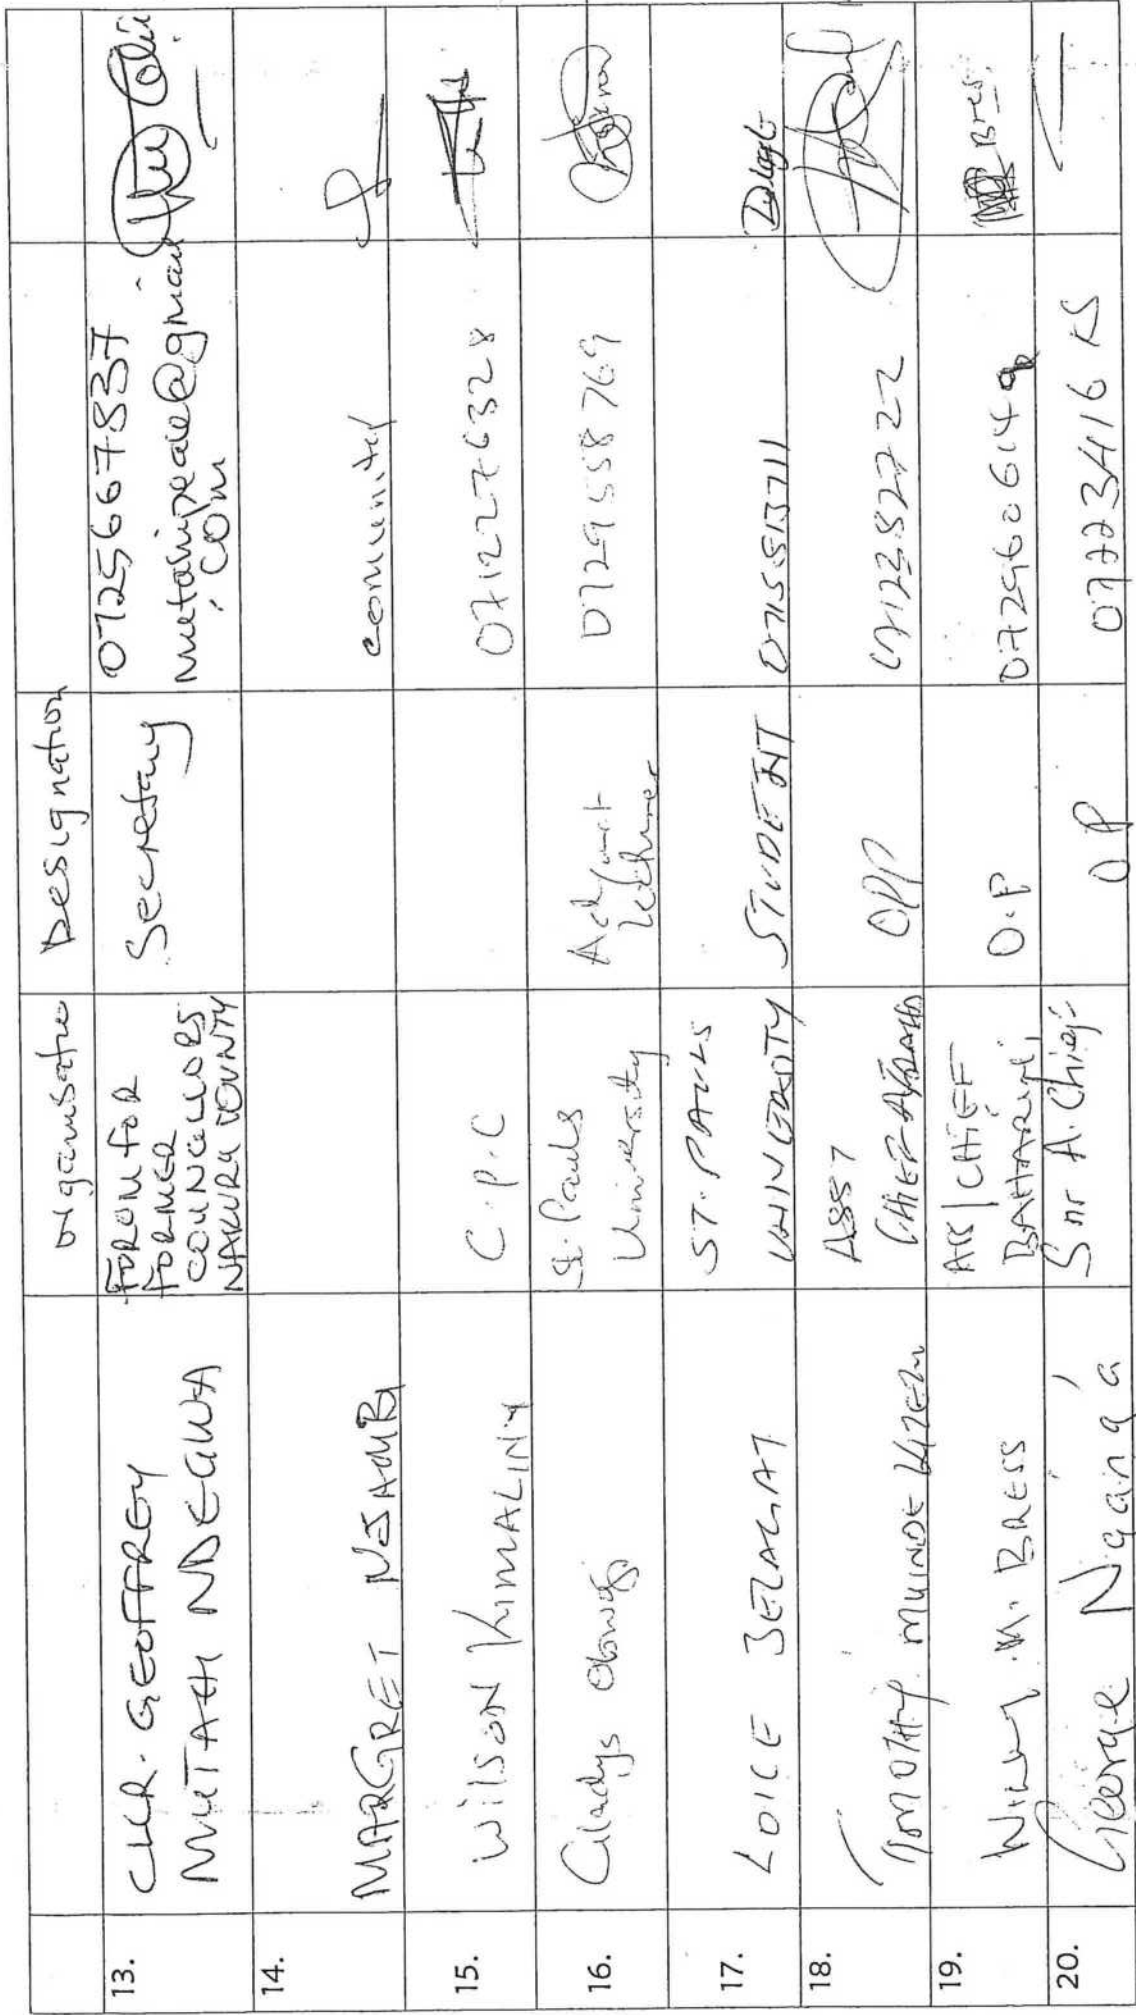 organisatio Designation
13. CLLR. GEOFFREY
MUTAHI NDEGWA
FORUM FOR
FORMER
COUNCILLORS
NAKURU COUNTY
Secretary
0725667837
mutahipeace@gmail
.com
14. MARGRET NJAMBI
comunity
15. WilSON KIMALINY
C.P.C
0712276328
16. Gladys
St. Pauls
University
Adjunct
lecturer
0729558769
17. LOICE JELAGAT
ST. PAULS
UNIVERSITY
STUDENT
0715513711
18. TIMOTHY MUINDE
ASST
CHIEF
OPP
0712382722
19. M. BRESS
ASS/CHIEF
O.P
Bres
20. George Ngang'a
Snr A. Chief
OP